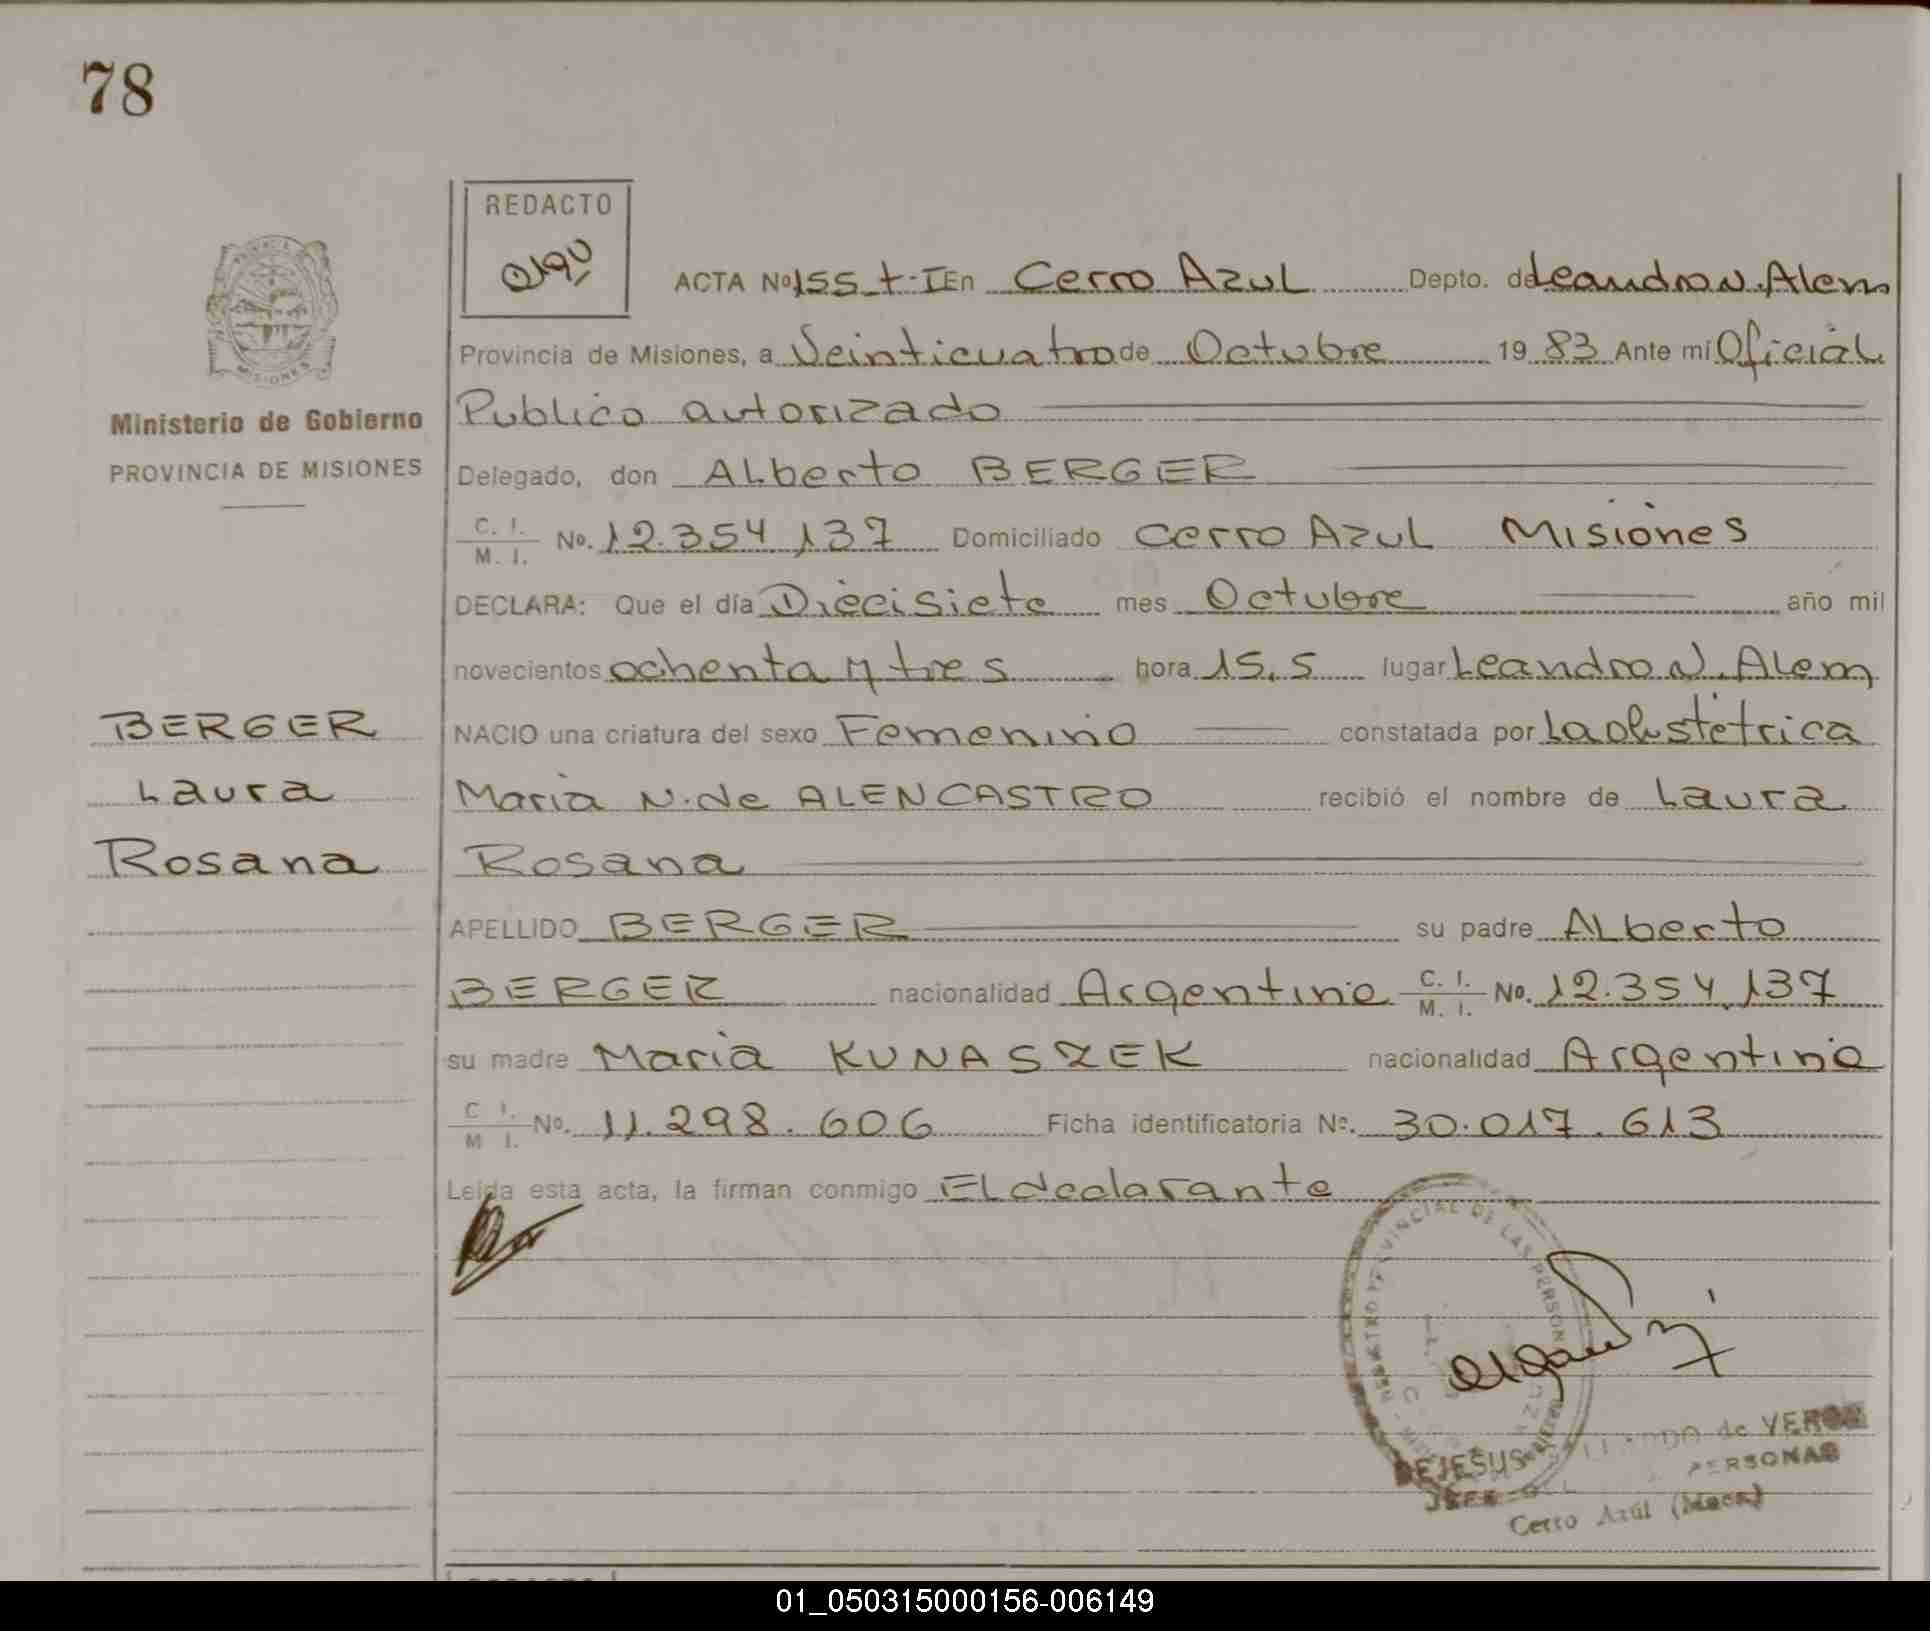 78
REDACTO
ACTA Nº 155 t-I En Cerro Azul Depto. de Leandro N. Alem
Provincia de Misiones, a Veinticuatro de Octubre 19 83 Ante mi Oficial
Publico autorizado
Delegado, don Alberto BERGER
C. I. / M. I. No. 12.354.137 Domiciliado Cerro Azul Misiones
DECLARA: Que el día Diecisiete mes Octubre año mil
novecientos ochenta y tres hora 15,5 lugar Leandro N. Alem
NACIO una criatura del sexo Femenino constatada por La obstétrica
Maria N. de ALENCASTRO recibió el nombre de Laura
Rosana
APELLIDO BERGER su padre Alberto
BERGER nacionalidad Argentina C. I. / M. I. No. 12.354.137
su madre Maria KUNASZEK nacionalidad Argentina
C I. / M I. No. 11.298.606 Ficha identificatoria Nº. 30.017.613
Leída esta acta, la firman conmigo El declarante
PROVINCIA
MISIONES
Ministerio de Gobierno
PROVINCIA DE MISIONES
BERGER
Laura
Rosana
PROVINCIAL DE LAS PERSON
DEJESUS de VERON
JEFE PERSONAS
Cerro Azúl (Mnes)
01_050315000156-006149